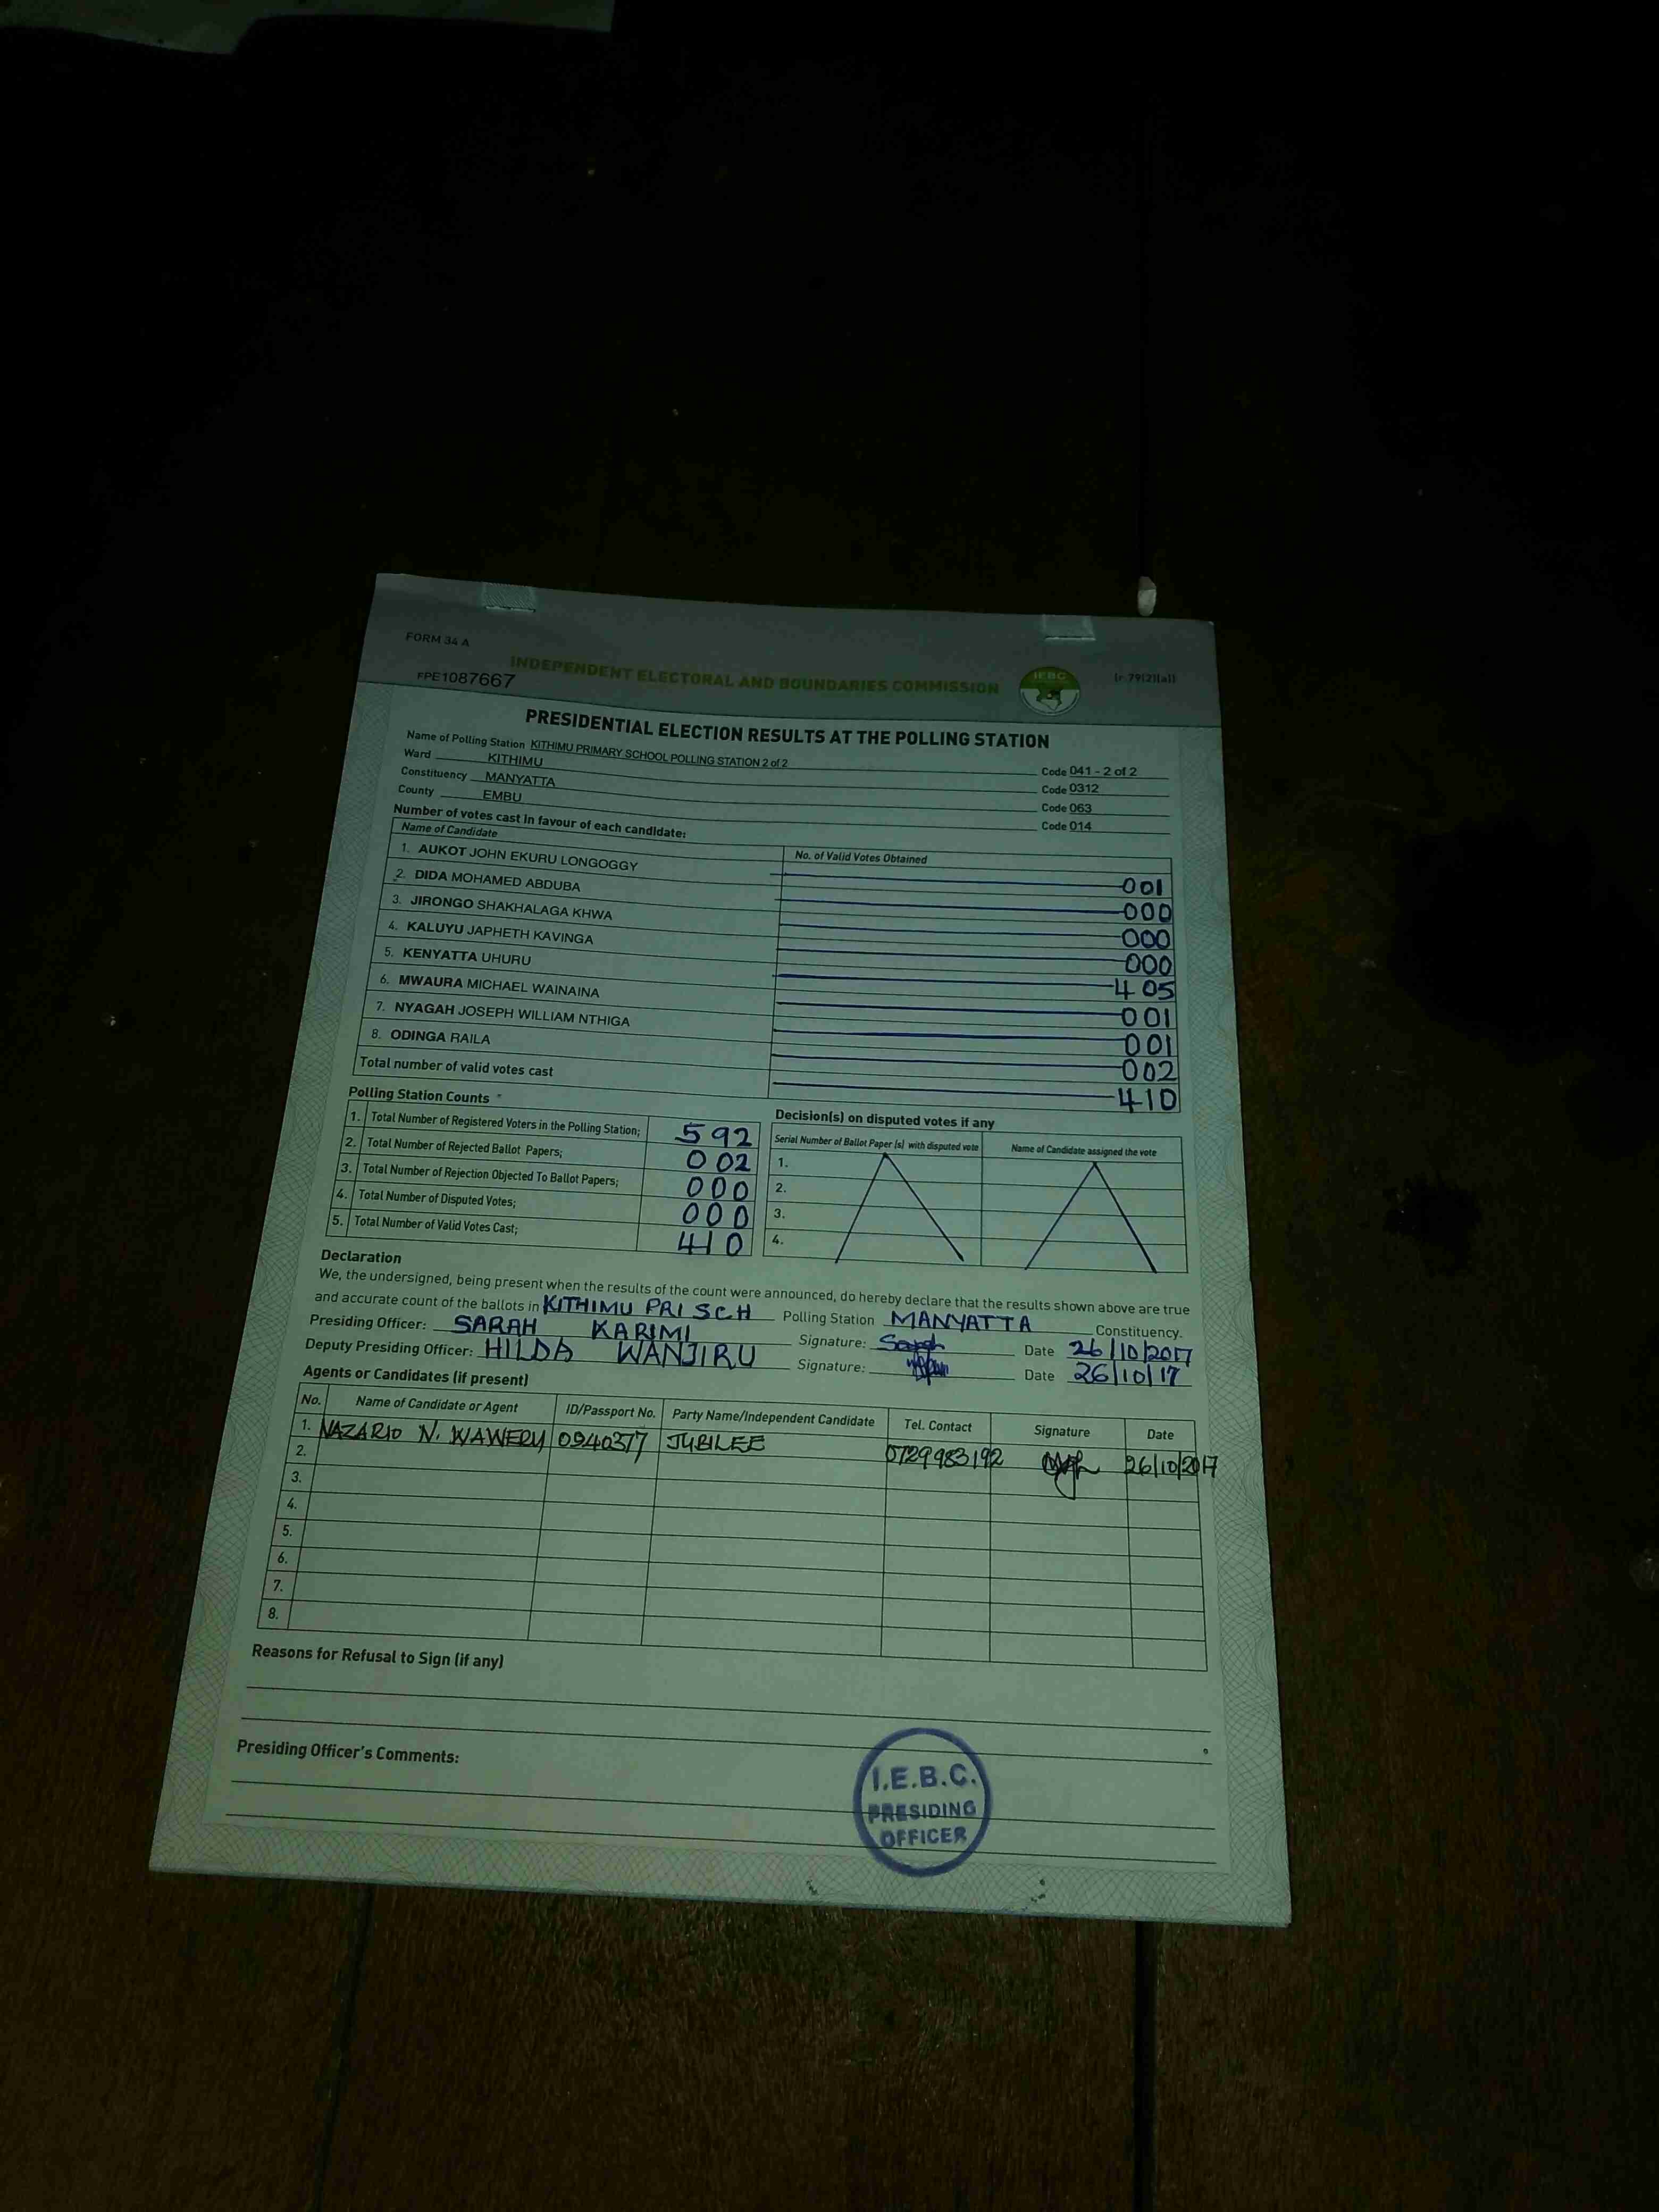 FORM 34 A
INDEPENDENT ELECTORAL AND BOUNDARIES COMMISSION
IEBC
(r. 79(2)(a))
FPE1087667
PRESIDENTIAL ELECTION RESULTS AT THE POLLING STATION
Name of Polling Station KITHIMU PRIMARY SCHOOL POLLING STATION 2 of 2 Code 041 - 2 of 2
Ward KITHIMU Code 0312
Constituency MANYATTA Code 063
County EMBU Code 014
Number of votes cast in favour of each candidate:
Name of Candidate No. of Valid Votes Obtained
1. AUKOT JOHN EKURU LONGOGGY 001
2. DIDA MOHAMED ABDUBA 000
3. JIRONGO SHAKHALAGA KHWA 000
4. KALUYU JAPHETH KAVINGA 000
5. KENYATTA UHURU 405
6. MWAURA MICHAEL WAINAINA 001
7. NYAGAH JOSEPH WILLIAM NTHIGA 001
8. ODINGA RAILA 002
Total number of valid votes cast 410
Polling Station Counts
1. Total Number of Registered Voters in the Polling Station; 592
2. Total Number of Rejected Ballot Papers; 002
3. Total Number of Rejection Objected To Ballot Papers; 000
4. Total Number of Disputed Votes; 000
5. Total Number of Valid Votes Cast; 410
Decision(s) on disputed votes if any
Serial Number of Ballot Paper (s) with disputed vote Name of Candidate assigned the vote
1.
2.
3.
4.
Declaration
We, the undersigned, being present when the results of the count were announced, do hereby declare that the results shown above are true
and accurate count of the ballots in KITHIMU PRI SCH Polling Station MANYATTA Constituency.
Presiding Officer: SARAH KARIMI Signature: Sarah Date 26/10/2017
Deputy Presiding Officer: HILDA WANJIRU Signature: Date 26/10/17
Agents or Candidates (if present)
No. Name of Candidate or Agent ID/Passport No. Party Name/Independent Candidate Tel. Contact Signature Date
1. NAZARIO N. WAWERU 0940377 JUBILEE 0729983192 26/10/2017
2.
3.
4.
5.
6.
7.
8.
Reasons for Refusal to Sign (if any)
Presiding Officer's Comments:
I.E.B.C.
PRESIDING
OFFICER